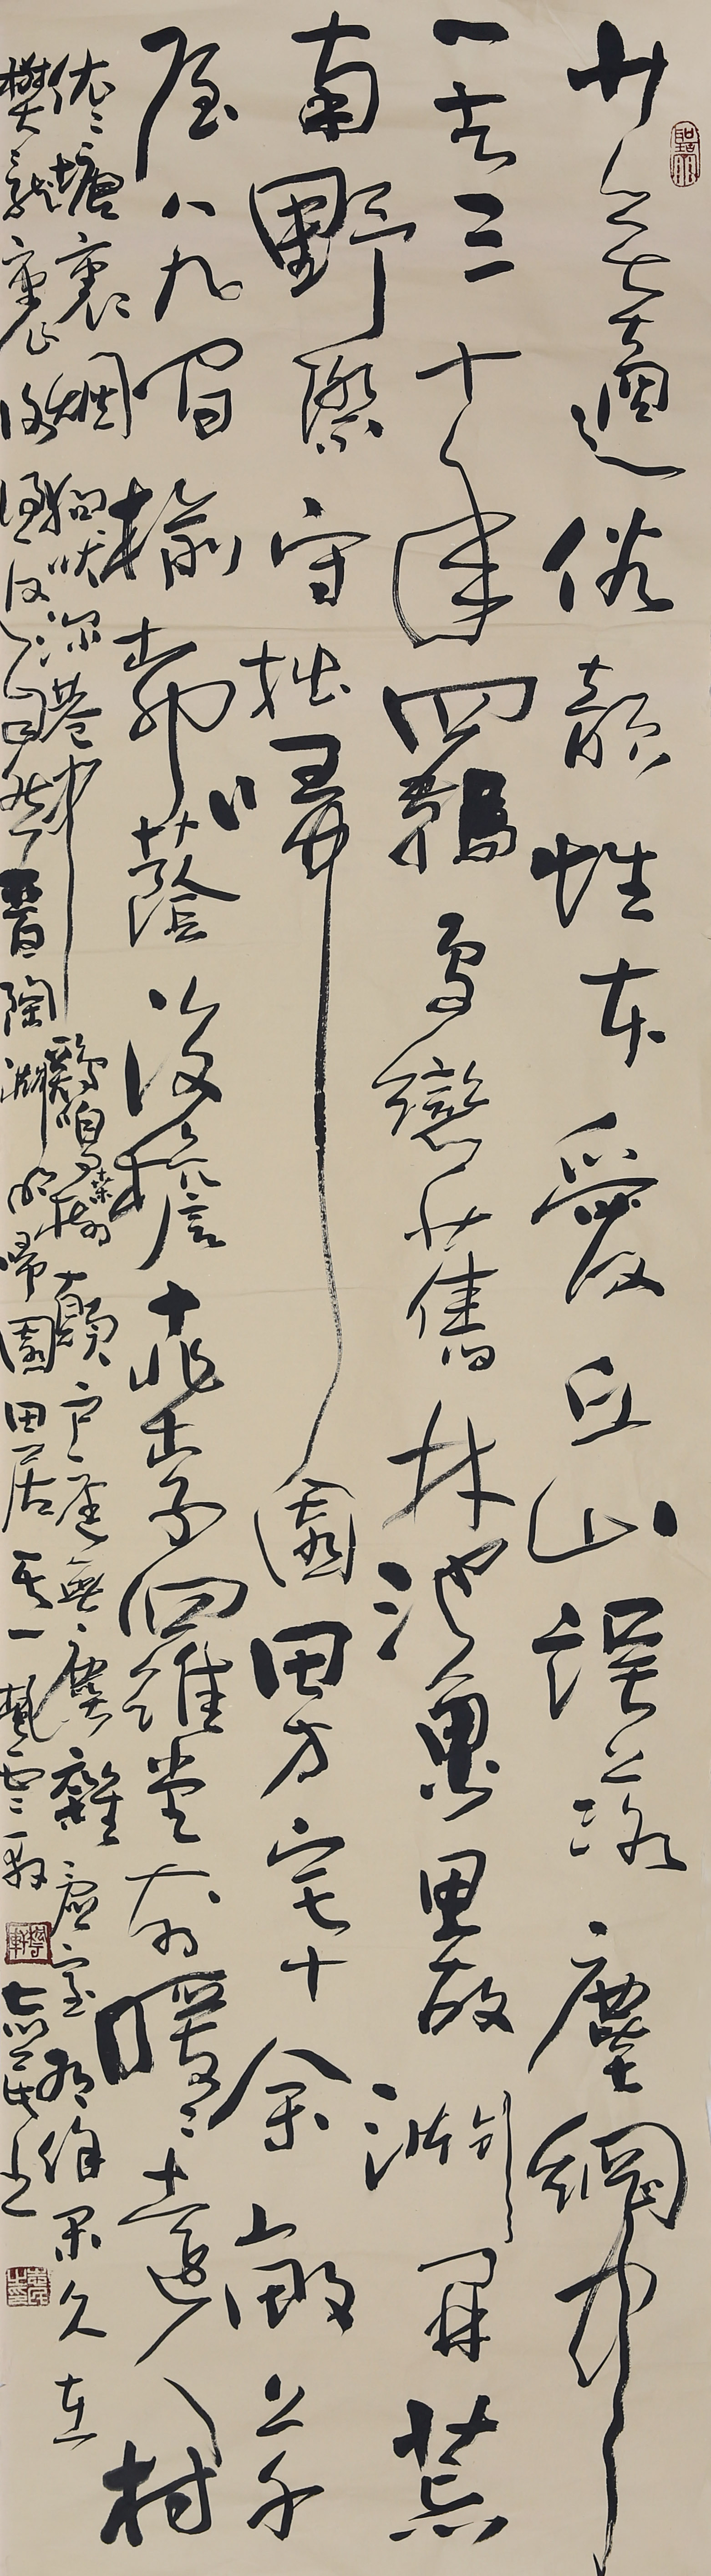 少無適俗韻性本愛丘山誤落塵網中
一去三十年羈鳥戀舊林池魚思故淵開荒
南野際守拙歸園田方宅十余畝草
屋八九間榆柳蔭後檐桃李羅堂前曖曖遠人村
依依墟裏烟狗吠深巷中鷄鳴桑樹顛戶庭無塵雜虛室有余閑久在
樊籠裏復得返自然晉陶淵明歸園田居其一